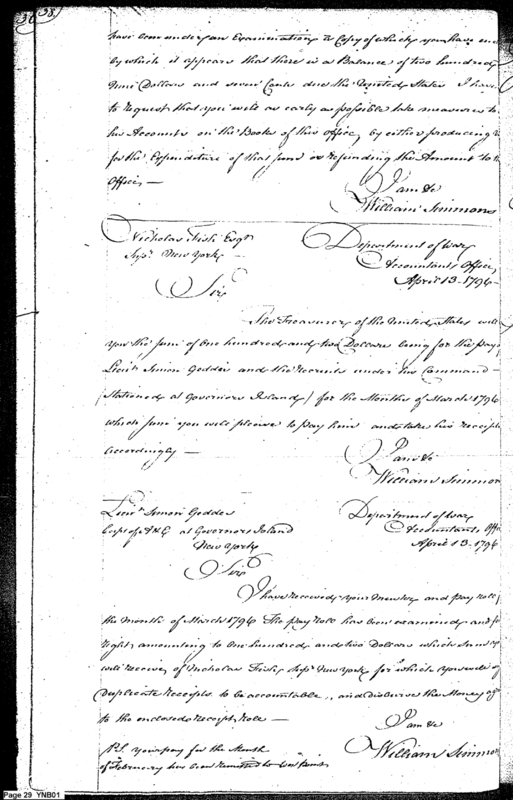 38
have been under an Examination a Copy of which you have
by which it appears that there is a Balance of two hundred
nine Dollars and seven Cents due the United States I have
to request that you will as early as possible take measures to
his Accounts on the Books of this office, by either producing
for the Expenditure of that sum or refunding the Amount to
Office —
I am &c
William Simmons
Nicholas Fish Esqr
Supr New York
Department of War
Accountants Office
April 13 1796
Sir
The Treasurer of the United States will
you the sum of One hundred and two Dollars being for the pay
Lieut Simon Geddes and the recruits under his Command
(Stationed at Governors Island) for the Months of March 1796
which sum you will please to pay him and take his receipts
Accordingly —
I am &c
William Simmon
Lieut Simon Geddes
Corps of A & E at Governors Island
New York
Department of War
Accountants Offi
April 13. 1796
Sir
I have received your Muster and pay roll
the month of March 1796 The pay Roll has been examined and fo
right amounting to One hundred and two Dollars which sum
will receive of Nicholas Fish, Supr New York for which you will
Duplicate Receipts to be accountable, and disburse the Money
to the enclosed Receipt Role —
I am &c
William Simmon
P.S. your pay for the Month
of February has been
Page 29 YNB01